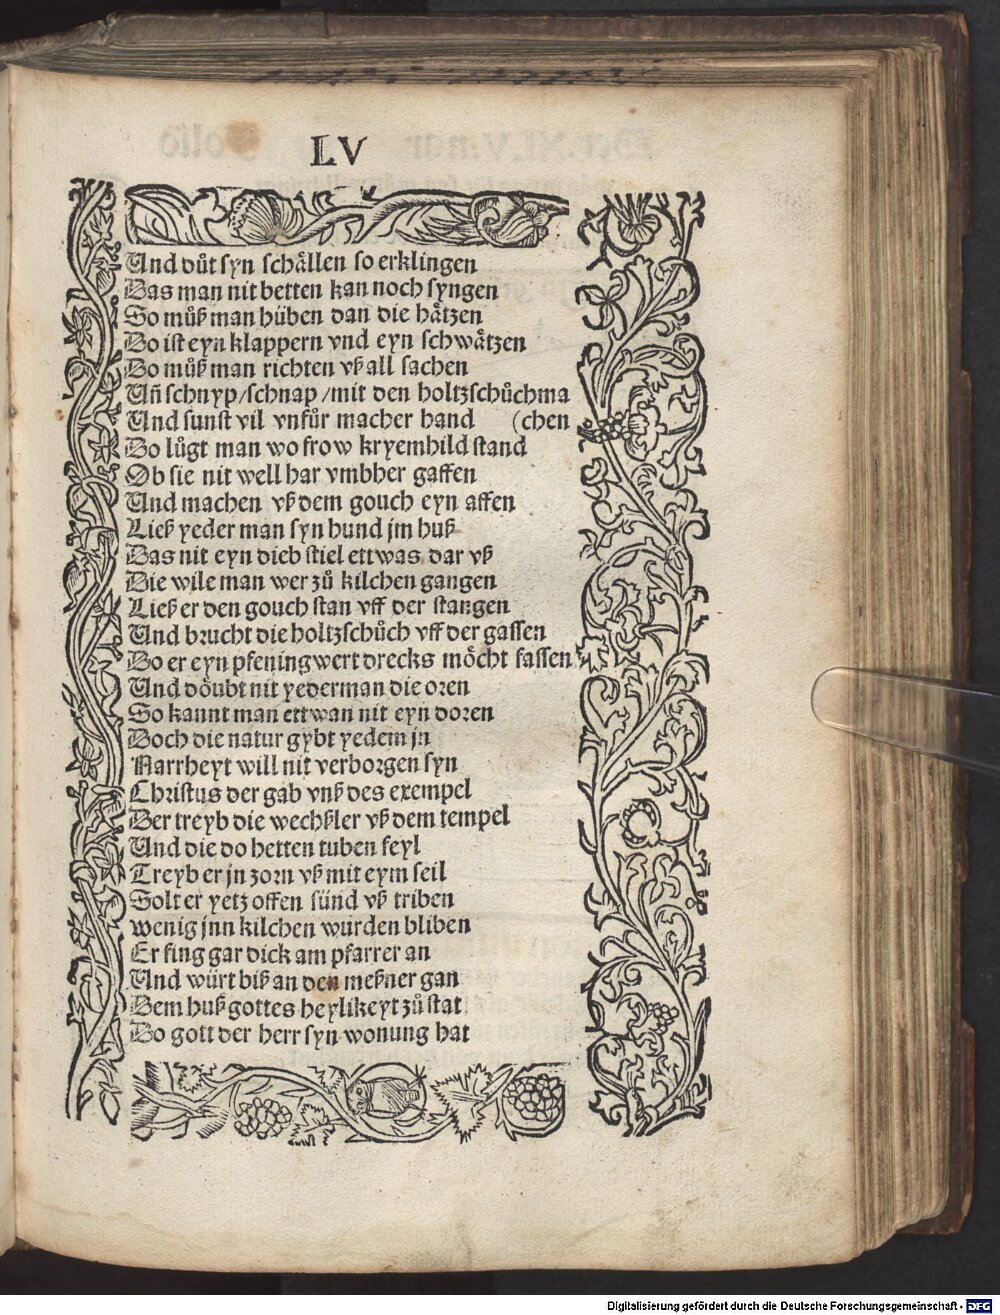 LV
Und důt syn schällen so erklingen
Das man nit betten kan noch syngen
So můß man hüben dan die hätzen
Do ist eyn klappern vnd eyn schwätzen
Do můß man richten vß all sachen
Uñ schnyp/schnap/mit den holtzschůchma
Und sunst vil vnfůr macher hand (chen
Do lůgt man wo frow kryemhild stand
Ob sie nit well har vmbher gaffen
Und machen vß dem gouch eyn affen
Ließ yeder man syn hund jm huß
Das nit eyn dieb stiel ettwas dar vß
Die wile man wer zů kilchen gangen
Ließ er den gouch stan vff der stangen
Und brucht die holtzschůch vff der gassen
Do er eyn pfeningwert drecks möcht fassen
Und döubt nit yederman die oren
So kannt man ettwan nit eyn doren
Doch die natur gybt yedem jn
Narrheyt will nit verborgen syn
Christus der gab vnß des exempel
Der treyb die wechßler vß dem tempel
Und die do hetten tuben feyl
Treyb er jn zorn vß mit eym seil
Solt er yetz offen sünd vß triben
wenig jnn kilchen wurden bliben
Er fing gar dick am pfarrer an
Und würt biß an den meßner gan
Dem huß gottes heylikeyt zů stat
Do gott der herr syn wonung hat
Digitalisierung gefördert durch die Deutsche Forschungsgemeinschaft - DFG